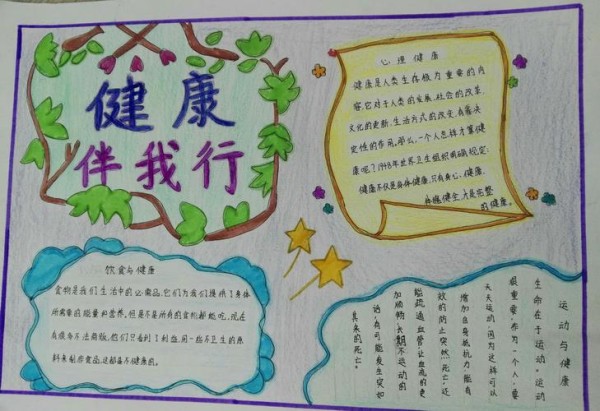 健康
伴我行
心理健康
健康是人类生存极为重要的内
容,它对于人类的发展,社会的改革,
文化的更新,生活方式的改变,有着决
定性的作用。那么,一个人怎样才算健
康呢?1948年世界卫生组织明确规定:
健康不仅是身体健康,只有身心,健康、
体魄健全,才是完整
的健康。
饮食与健康
食物是我们生活中的必需品,它们为我们提供了身体
所需要的能量和营养,但是不是所有的食物都能吃,现在
有很多不法商贩,他们只看到了利益,用一些不卫生的原
料来制作食品,这都是不健康的。
运动与健康
生命在于运动,运动
很重要,作为一个人,要
天天运动,因为这样可以
增加自身抵抗力,能有
效的防止突然死亡,还
能疏通血管,让血流的更
加顺畅,长期不运动的
话,有可能发生突如
其来的死亡。